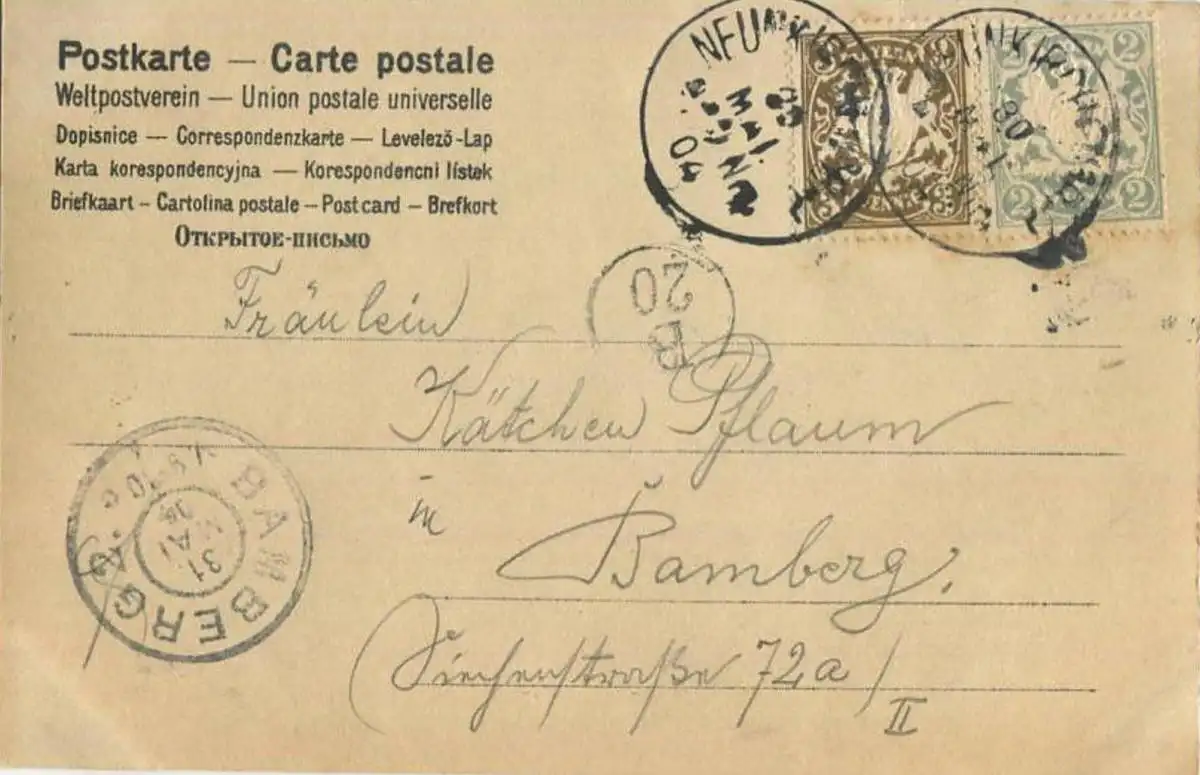 Postkarte — Carte postale
Weltpostverein — Union postale universelle
Dopisnice — Correspondenzkarte — Levelező-Lap
Karta korespondencyjna — Korespondencni lístek
Briefkaart – Cartolina postale – Post card – Brefkort
Открытое-письмо
3
2
2
2
30
MAI
04
20
B
Fräulein
Kätchen Pflaum
in
Bamberg.
Siechenstraße 72a/
II
BAMBERG
31
MAI
04